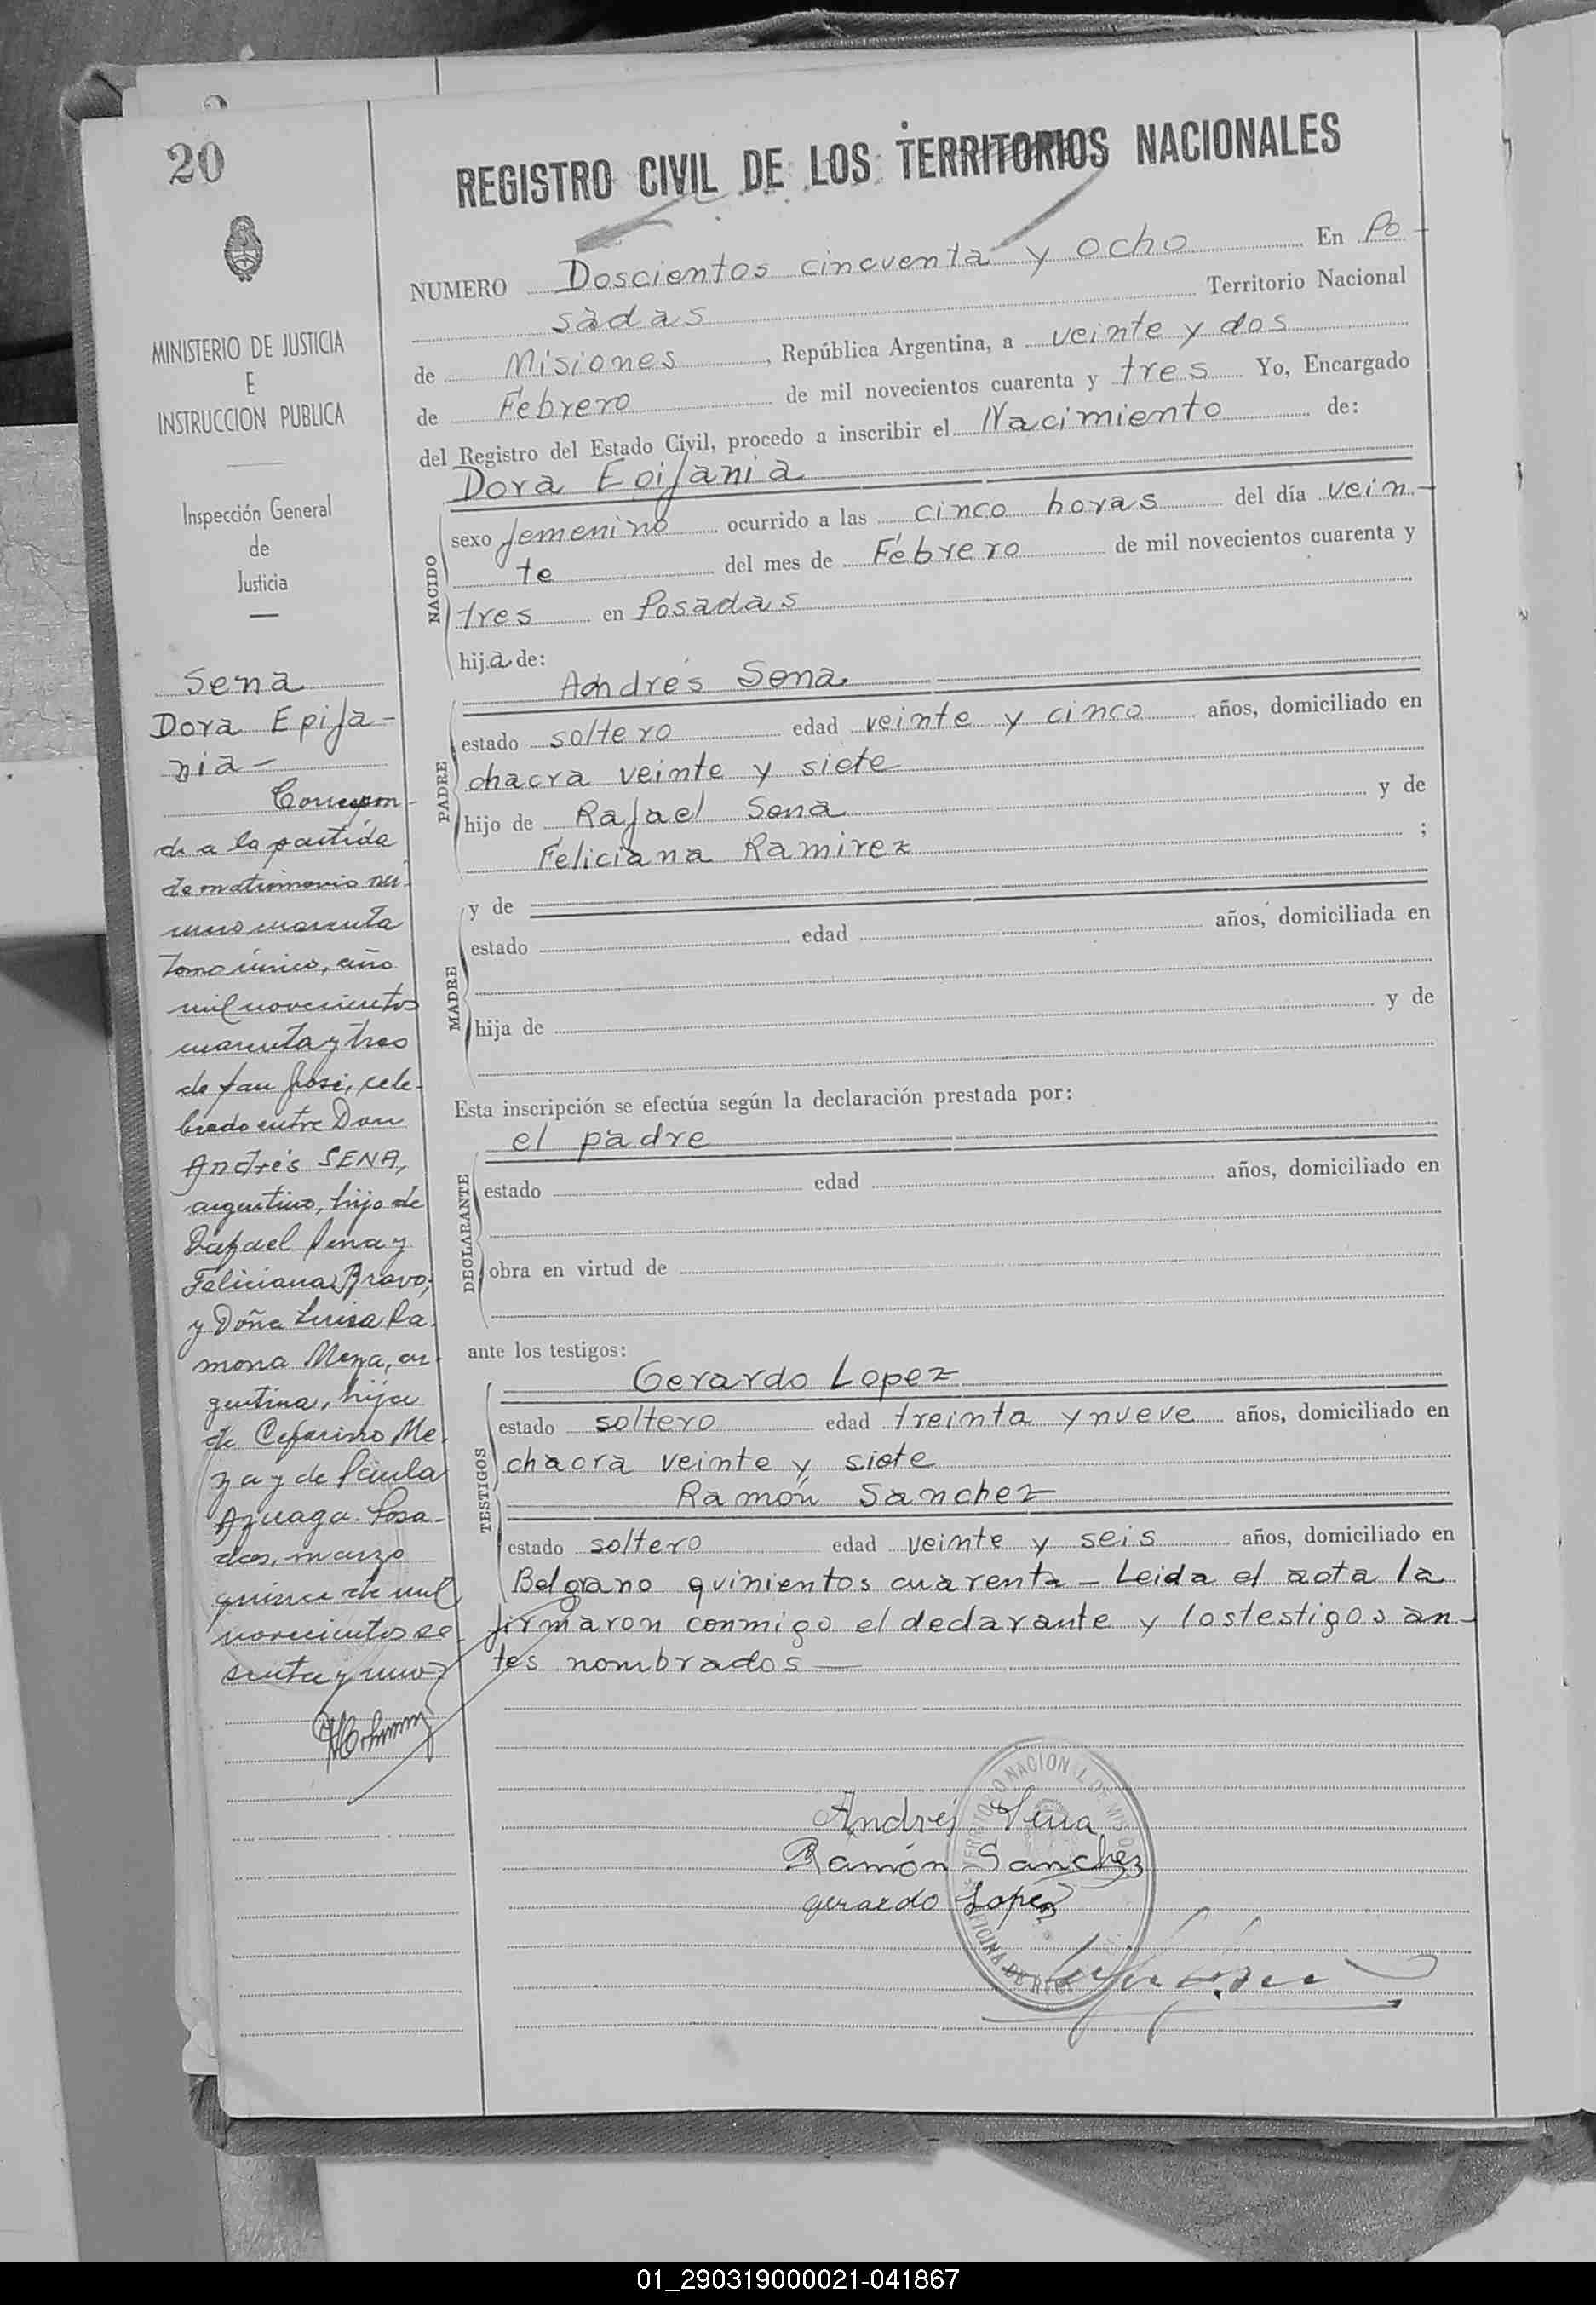 20
MINISTERIO DE JUSTICIA
E
INSTRUCCION PUBLICA
Inspección General
de
Justicia
Sena
Dora Epifa-
nia-
Correspon-
de a la partida
de matrimonio nú-
mero cuarenta
Tomo único, año
mil novecientos
cuarenta y tres
de San José, cele-
brado entre Don
Andrés SENA,
argentino, hijo de
Rafael Sena y
Feliciana Bravo,
y Doña Luisa Ra-
mona Meza, ar-
gentina, hija
de Ceferino Me-
za y de Paula
Azuaga. Posa-
das, marzo
quince de mil
novecientos se-
senta y uno
REGISTRO CIVIL DE LOS TERRITORIOS NACIONALES
NUMERO Doscientos cincuenta y ocho En Po-
sadas Territorio Nacional
de Misiones, República Argentina, a veinte y dos
de Febrero de mil novecientos cuarenta y tres Yo, Encargado
del Registro del Estado Civil, procedo a inscribir el Nacimiento de:
Dora Epifania
NACIDO
sexo femenino ocurrido a las cinco horas del día vein-
te del mes de Febrero de mil novecientos cuarenta y
tres en Posadas
hija de:
Andrés Sena
PADRE
estado soltero edad veinte y cinco años, domiciliado en
chacra veinte y siete
hijo de Rafael Sena y de
Feliciana Ramirez ;
y de
MADRE
estado edad años, domiciliada en
hija de y de
Esta inscripción se efectúa según la declaración prestada por:
el padre
DECLARANTE
estado edad años, domiciliado en
obra en virtud de
ante los testigos:
Gerardo Lopez
TESTIGOS
estado soltero edad treinta y nueve años, domiciliado en
chacra veinte y siete
Ramón Sanchez
estado soltero edad veinte y seis años, domiciliado en
Belgrano quinientos cuarenta - Leida el acta la
firmaron conmigo el declarante y los testigos an-
tes nombrados —
Andrés Sena
Ramón Sanchez
Gerardo Lopez
01_290319000021-041867